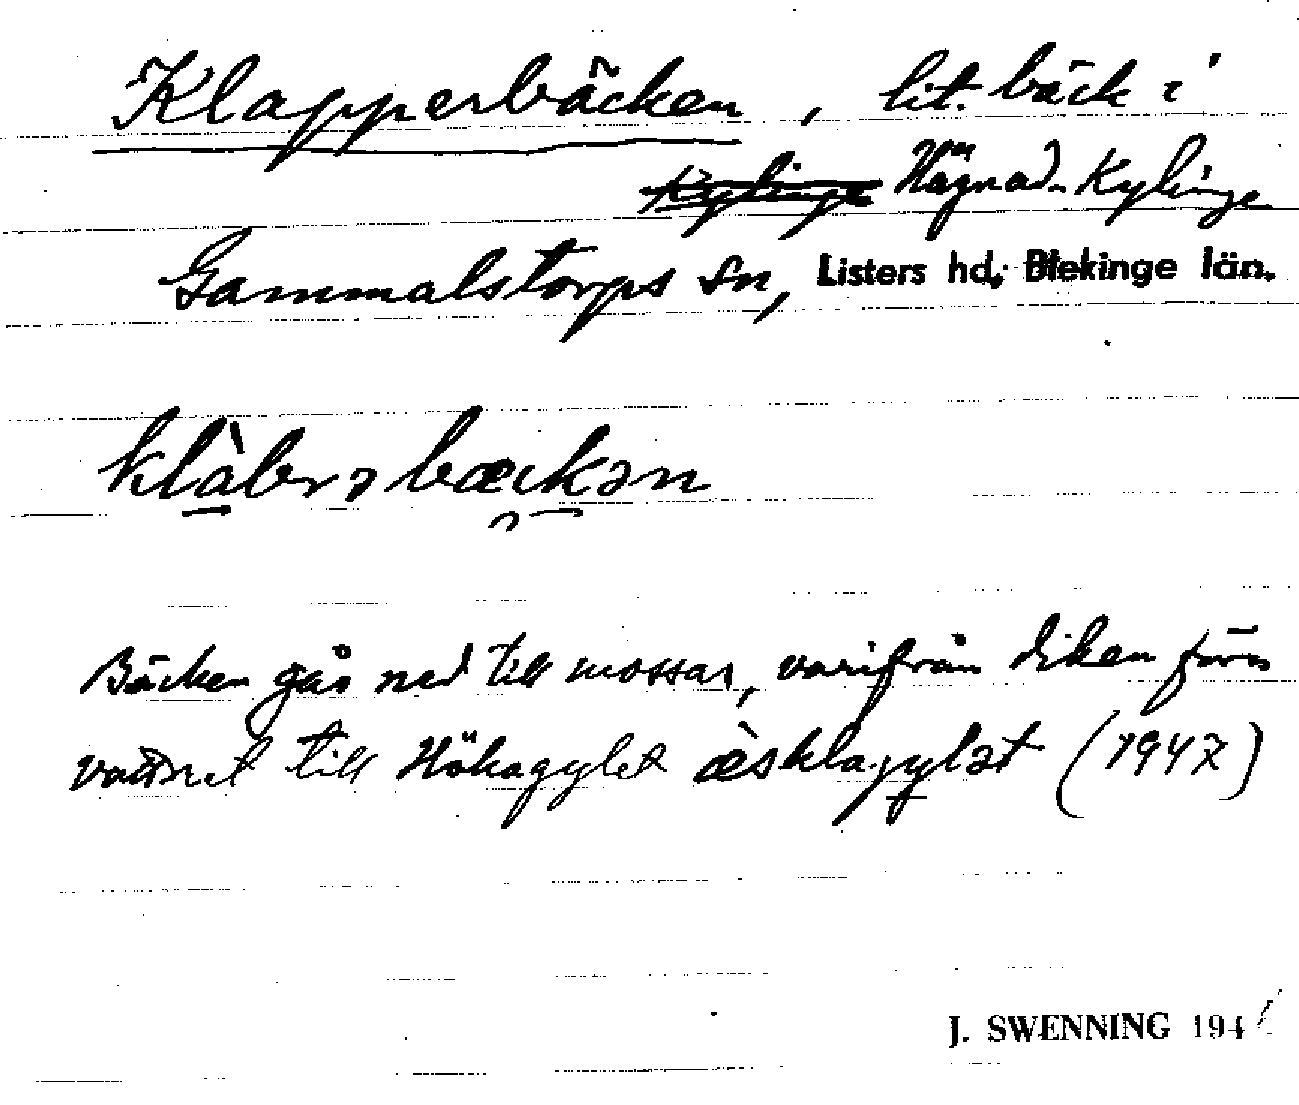 Klapperbäcken, lit. bäck i
Kylinge Hägnad. Kylinge
Gammalstorps sn, Listers hd, Blekinge län.
klàbrəbækən
Bäcken går ned till mossar, varifrån diken föra
vattnet till Hökagylet (1947)
J. SWENNING 194